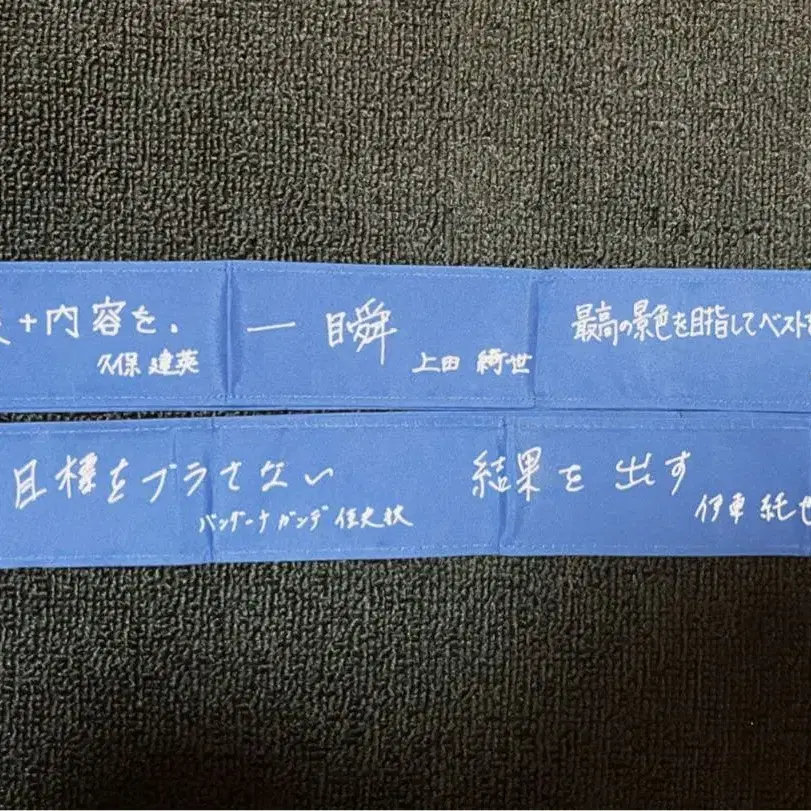 +内容を.
久保 建英
一瞬
上田 綺世
最高の景色を目指してベスト
目標をブラさない
バングーナガンデ 佳史扶
結果を出す
伊東 純也